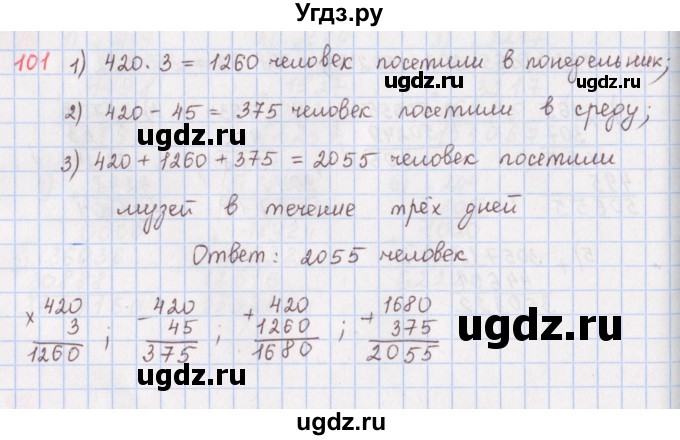 Угдз.ру
101 1) 420 · 3 = 1260 человек посетили в понедельник;
ugdz.ru ugdz.ru
2) 420 - 45 = 375 человек посетили в среду;
ugdz.ru
3) 420 + 1260 + 375 = 2055 человек посетили
ugdz.ru
музей в течение трёх дней
ugdz.ru
Ответ: 2055 человек
ugdz.ru
× 420 3 1260 ; - 420 45 375 ; + 420 1260 1680 ; + 1680 375 2055
ugdz.ru ugdz.ru
ugdz.ru